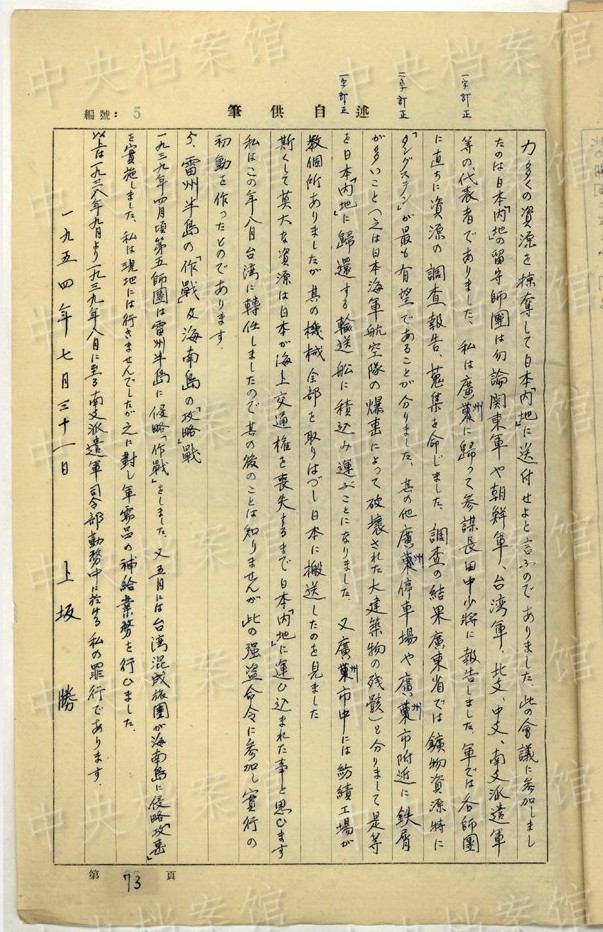 筆供自述
編號：5
一字訂正
二字訂正
一字訂正
力多くの資源を掠奪して日本「内地」に送付せよと言ふのでありました、此の會議に参加しまし
たのは日本「内地」の留守師團は勿論関東軍や朝鮮軍、台湾軍、北支、中支、南支派遣軍
等の代表者でありました、私は廣州に歸って参謀長田中少將に報告しました、軍では各師團
に直ちに資源の調査報告、蒐集を命じました、調査の結果廣東省では鑛物資源特に
「タングステン」が最も有望であることが分りました、其の他廣州停車場や廣州市附近に鉄屑
が多いこと(之は日本海軍航空隊の爆撃によって破壊された大建築物の残骸)を分りまして是等
を日本「内地」に歸還する輸送船に積込み運ぶことになりました、又廣州市中には紡績工場が
数個所ありましたが其の機械全部を取りはづし日本に搬送したのを見ました
斯くして莫大な資源は日本が海上交通権を喪失するまで日本「内地」に運び込まれた事と思ひます
私はこの年八月台湾に轉任しましたので其の後のことは知りませんが此の强盗命令に参加し實行の
初動を作ったものであります.
5、雷州半島の「作戰」及海南島の「攻略」戰
一九三九年四月頃第五師團は雷州半島に侵略「作戰」をしました、又五月には台湾混成旅團が海南島に侵略「攻畧」
を實施しました、私は現地には行きませんでしたが之に對し軍需品の補給業務を行ひました.
以上は一九三八年九月より一九三九年八月に至る南支派遣軍司令部勤務中に於ける私の罪行であります.
一九五四年七月三十一日 上坂勝
第73頁
中央档案馆